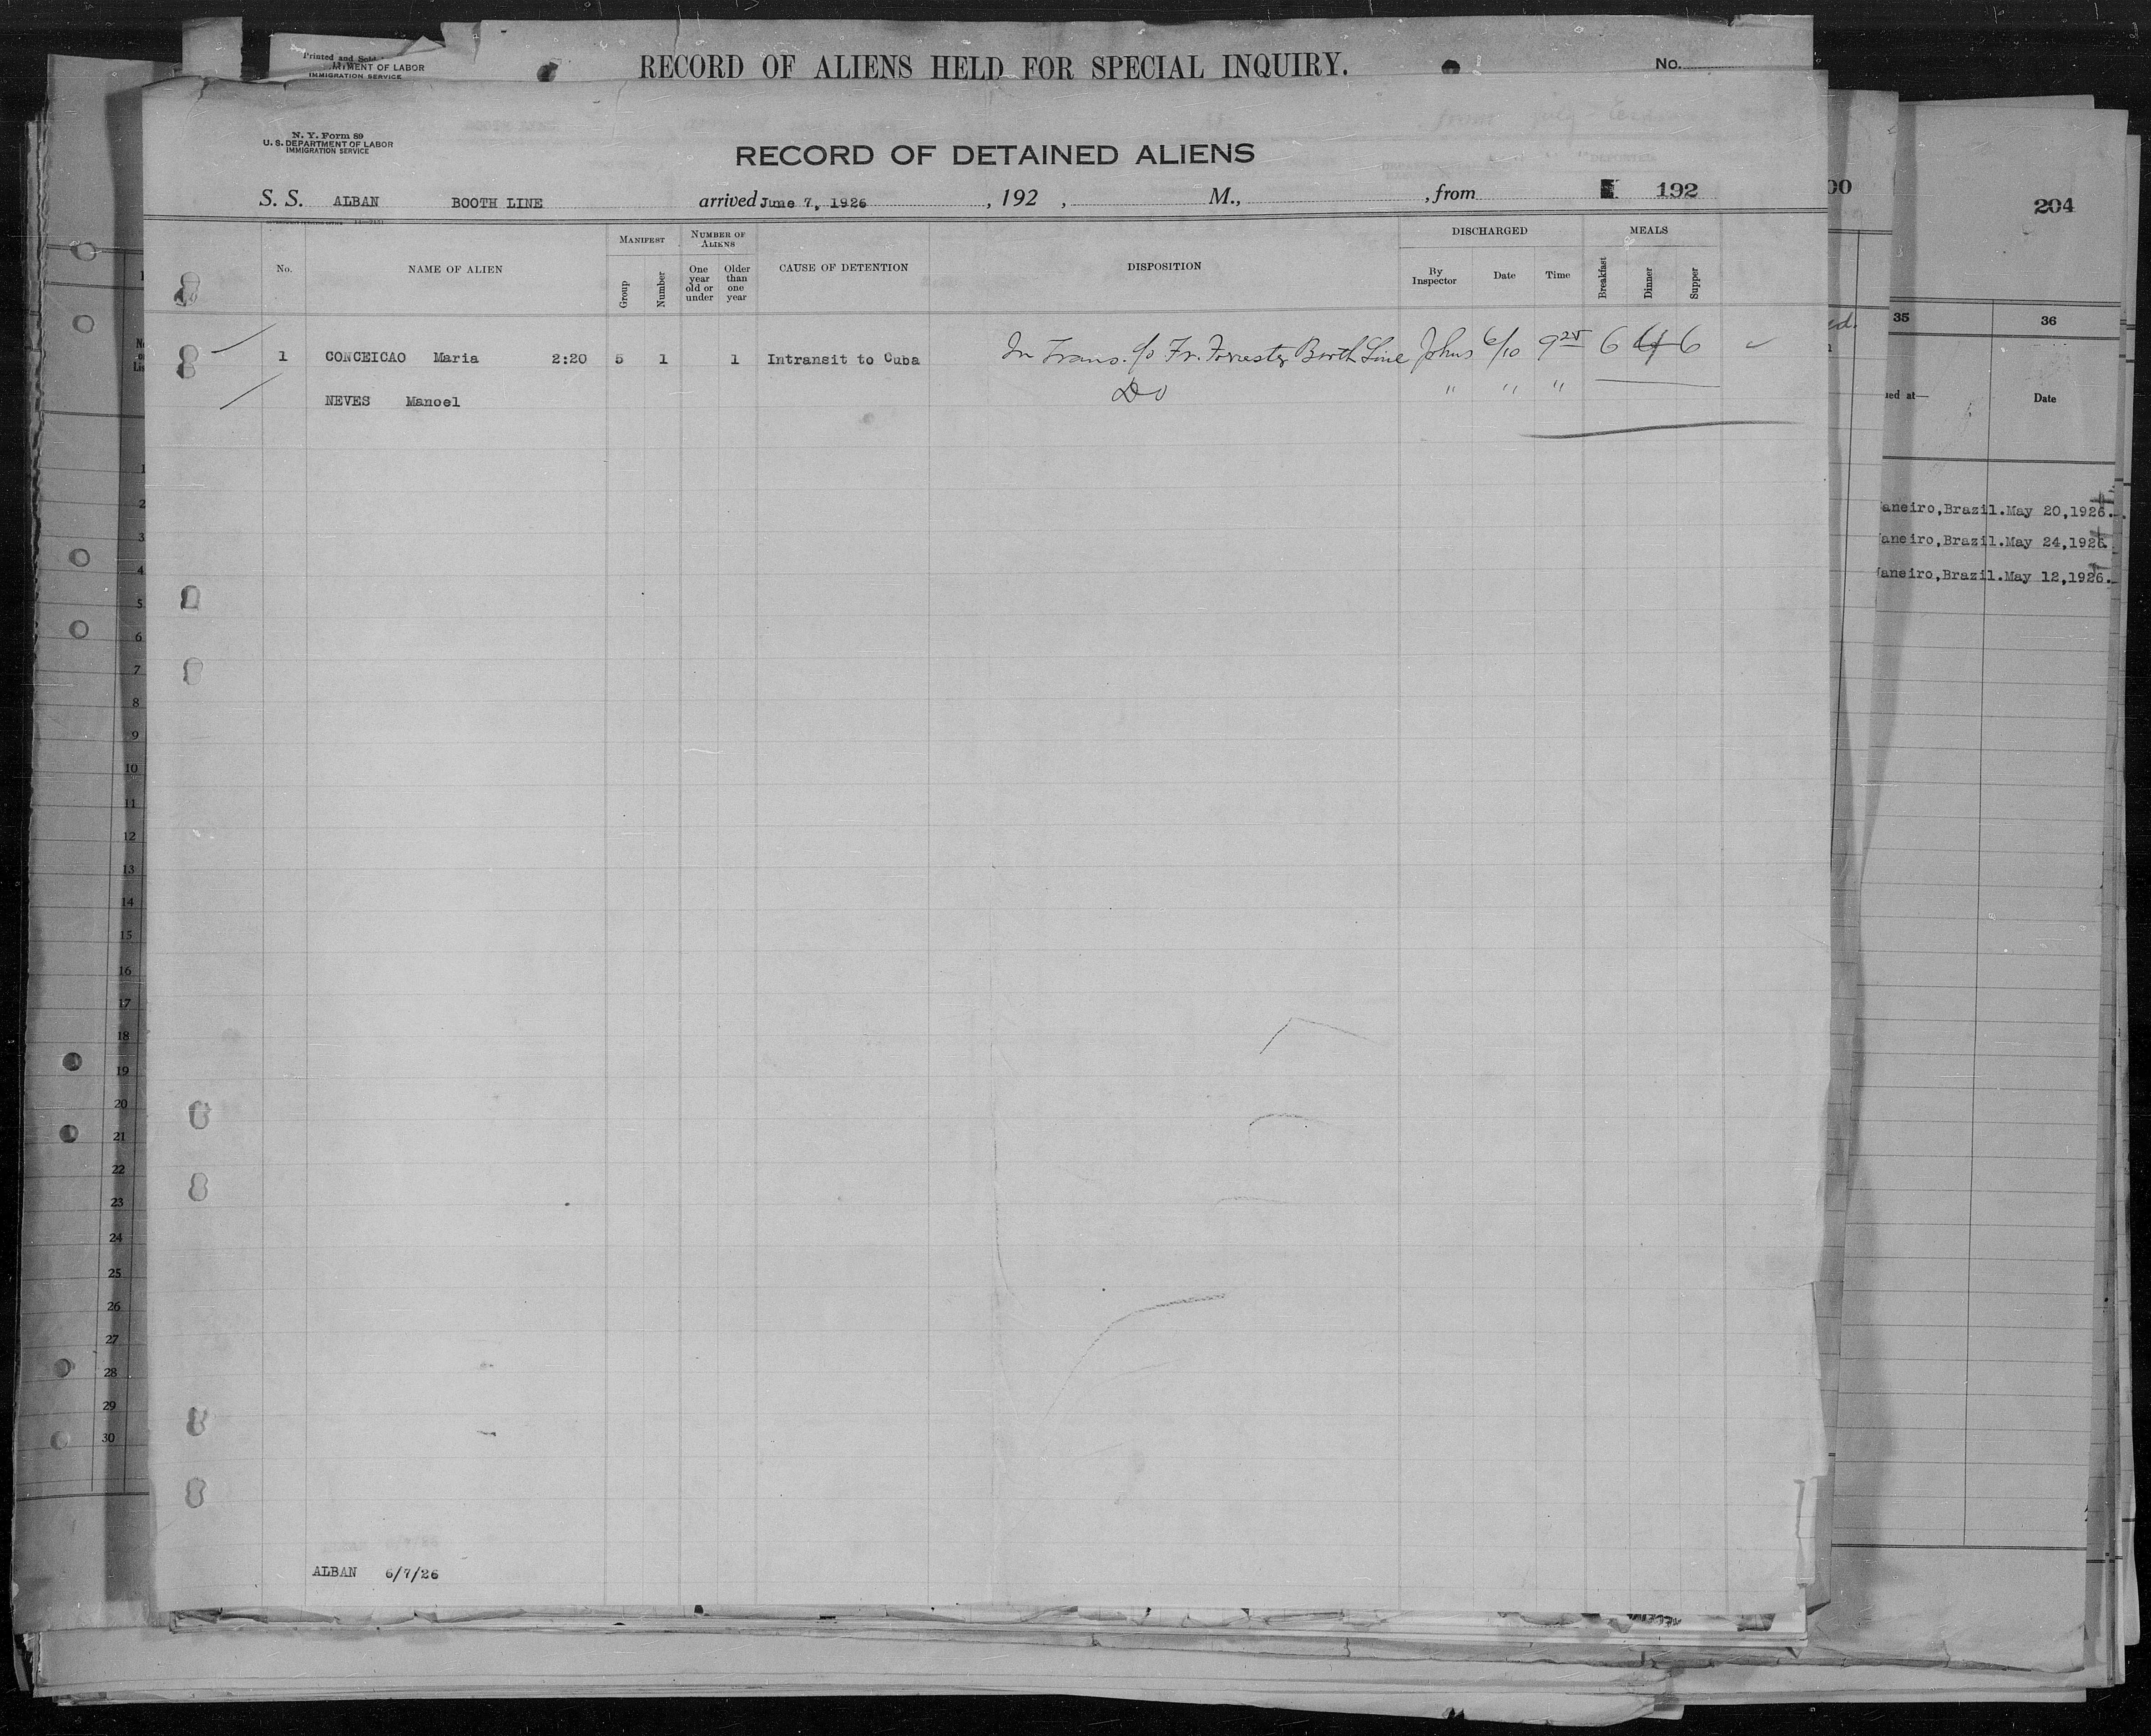 Printed and Sold
RTMENT OF LABOR
IMMIGRATION SERVICE
RECORD OF ALIENS HELD FOR SPECIAL INQUIRY.
No.
N. Y. Form 89
U. S. DEPARTMENT OF LABOR
IMMIGRATION SERVICE
RECORD OF DETAINED ALIENS
S. S. ALBAN BOOTH LINE arrived June 7, 1926, 192 , M., , from 192
00
204
No. NAME OF ALIEN MANIFEST Group Number NUMBER OF ALIENS One year old or under Older than one year CAUSE OF DETENTION DISPOSITION DISCHARGED By Inspector Date Time MEALS Breakfast Dinner Supper
35 36
ued at— Date
1 CONCEICAO Maria 2:20 5 1 1 Intransit to Cuba In Trans. c/o Fr. Forrester Booth Line Johns 6/10 9 25 6 6 6
NEVES Manoel Do " " "
aneiro,Brazil.May 20,1926.
aneiro,Brazil.May 24,1926.
aneiro,Brazil.May 12,1926.
1
2
3
4
5
6
7
8
9
10
11
12
13
14
15
16
17
18
19
20
21
22
23
24
25
26
27
28
29
30
ALBAN 6/7/26